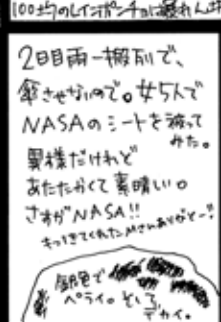 100均のレインポンチョに
2日目雨一般列で、
傘させないので。女5人で
NASAのシートを被って
みた。
異様だけれど
あたたかくて素晴しい。
さすがNASA!!
もってきてくれたMさんありがとー!
銀色で
ペラィ。
デカイ。